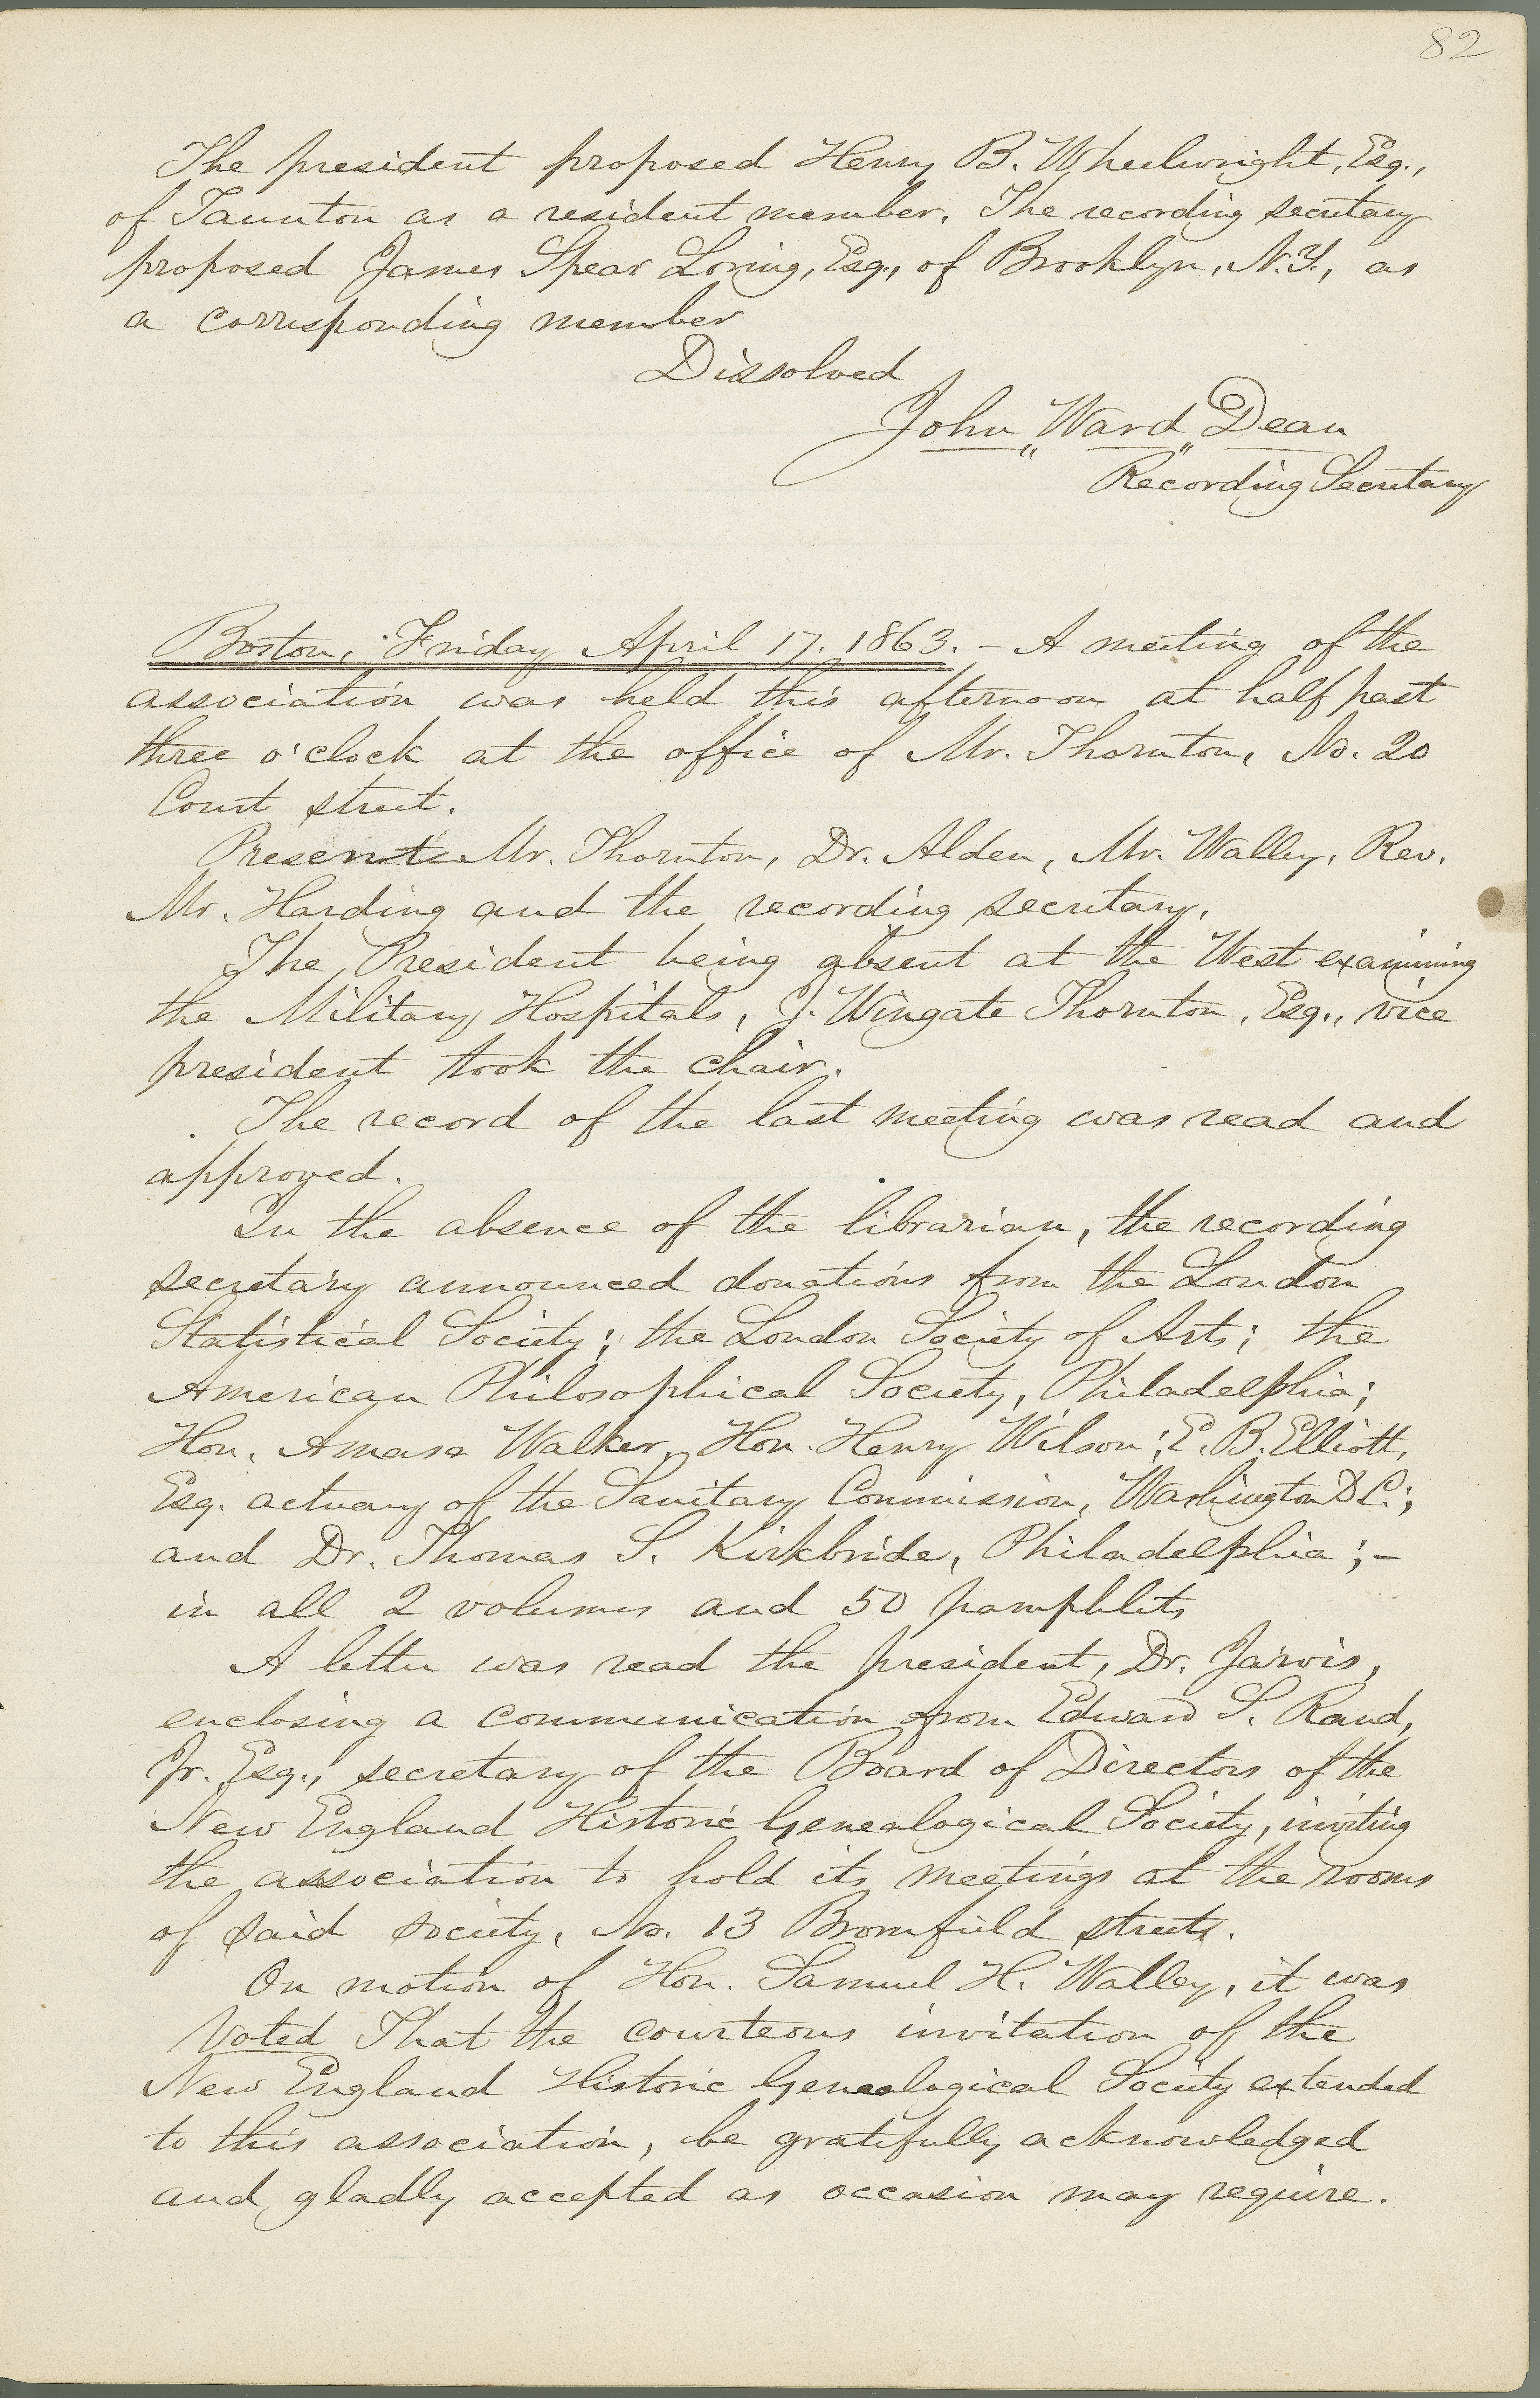 82
The president proposed Henry B. Wheelwright, Esq.,
of Taunton as a resident member. The recording secretary
proposed James Spear Loring, Esq., of Brooklyn, N.Y., as
a corresponding member
Dissolved
John Ward Dean
Recording Secretary
Boston, Friday April 17. 1863. – A meeting of the
association was held this afternoon at half past
three o'clock at the office of Mr. Thornton, No. 20
Court street.
Present Mr. Thornton, Dr. Alden, Mr. Walley, Rev.
Mr. Harding and the recording secretary.
The President being absent at the West examining
the Military Hospitals, J. Wingate Thornton, Esq., vice
president took the chair.
The record of the last meeting was read and
approved.
In the absence of the librarian, the recording
secretary announced donations from the London
Statistical Society; the London Society of Arts; the
American Philosophical Society, Philadelphia;
Hon. Amasa Walker, Hon. Henry Wilson; E. B. Elliott,
Esq. actuary of the Sanitary Commission, Washington D C.;
and Dr. Thomas S. Kirkbride, Philadelphia; –
in all 2 volumes and 50 pamphlets
A letter was read the president, Dr. Jarvis,
enclosing a communication from Edward S. Rand,
Jr. Esq., secretary of the Board of Directors of the
New England Historic Genealogical Society, inviting
the association to hold its meetings at the rooms
of said society, No. 13 Bromfield street.
On motion of Hon. Samuel H. Walley, it was
Voted That the courteous invitation of the
New England Historic Genealogical Society extended
to this association, be gratifully acknowledged
and gladly accepted as occasion may require.